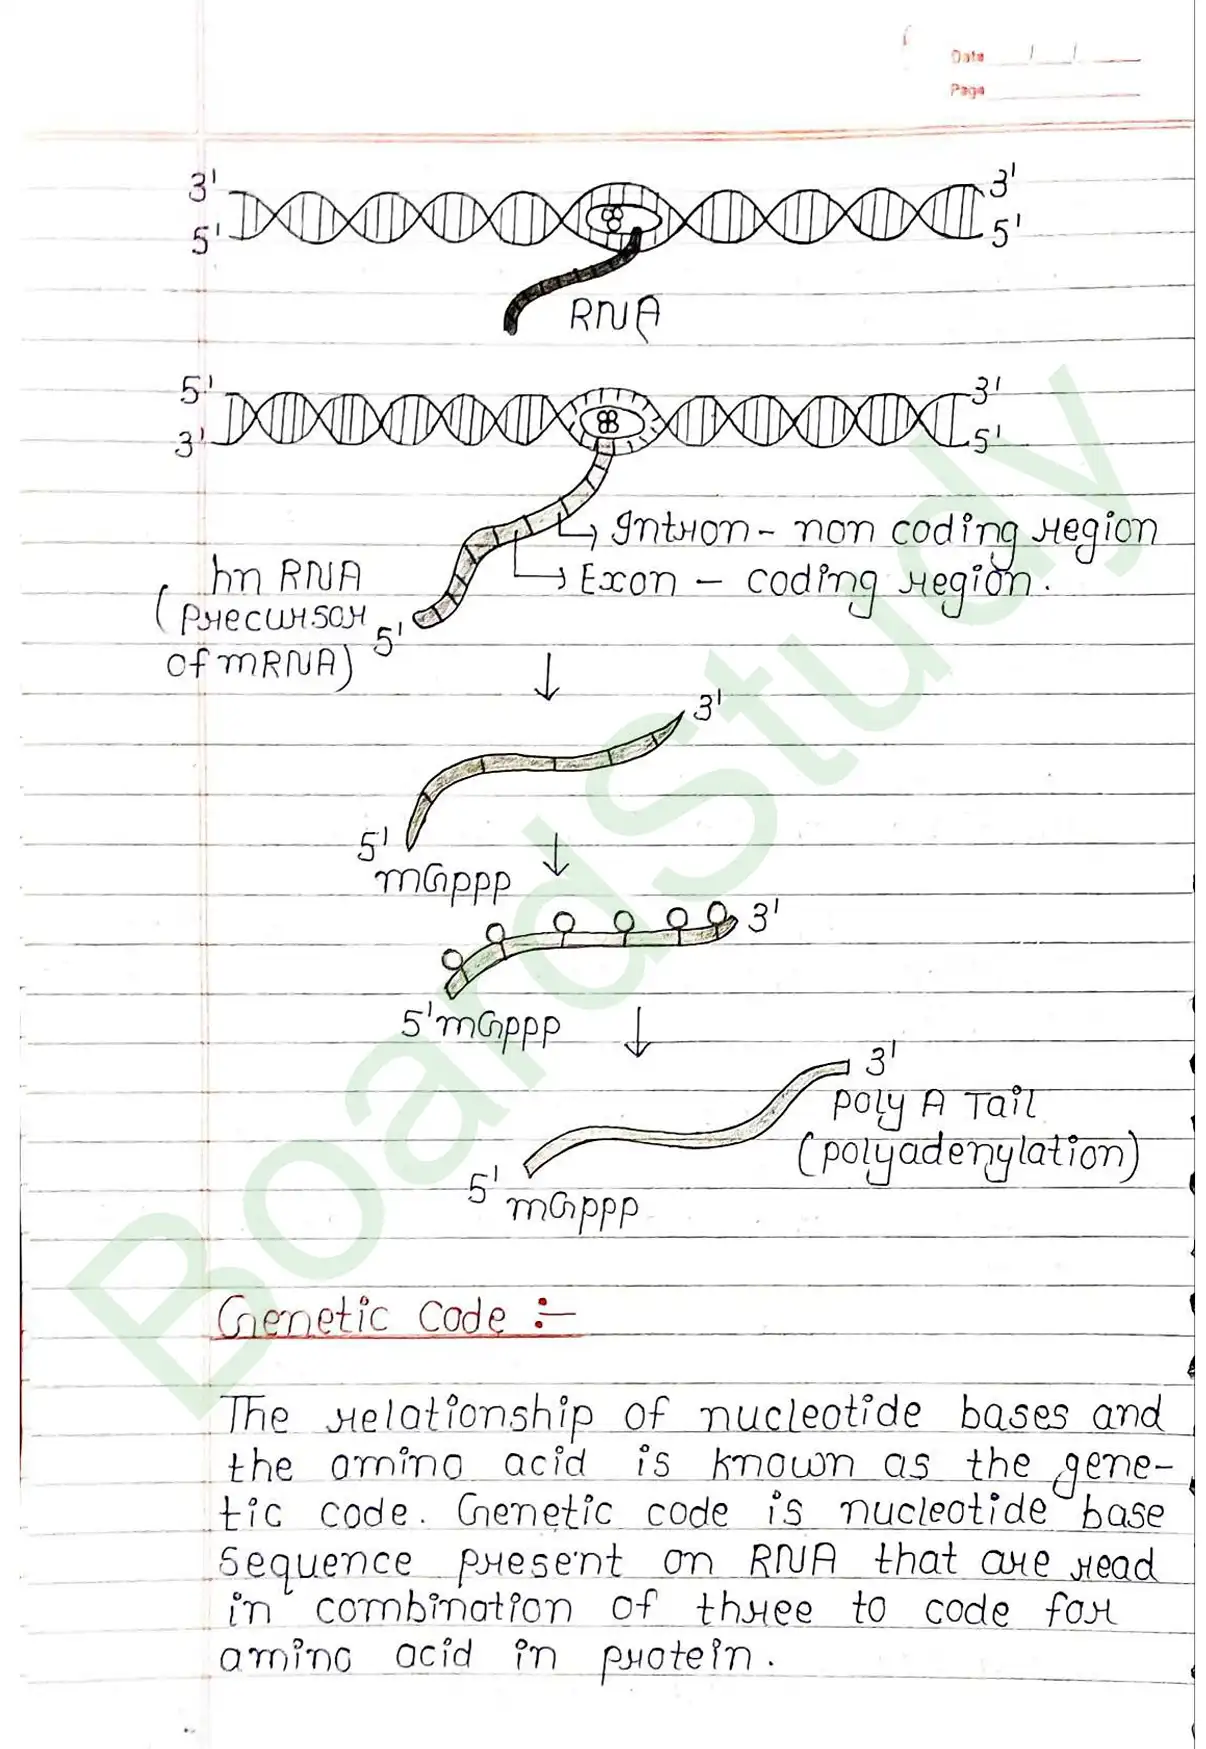 Date / /
Page
3' 3'
5' 5'
RNA
5' 3'
3' 5'
Intron - non coding region
Exon - coding region.
hn RNA
(precursor
of mRNA) 5'
3'
5'
mGppp
3'
5' mGppp
3'
poly A Tail
(polyadenylation)
5' mGppp
Genetic Code :-
The relationship of nucleotide bases and
the amino acid is known as the gene-
tic code. Genetic code is nucleotide base
sequence present on RNA that are read
in combination of three to code for
amino acid in protein.
BoardStudy